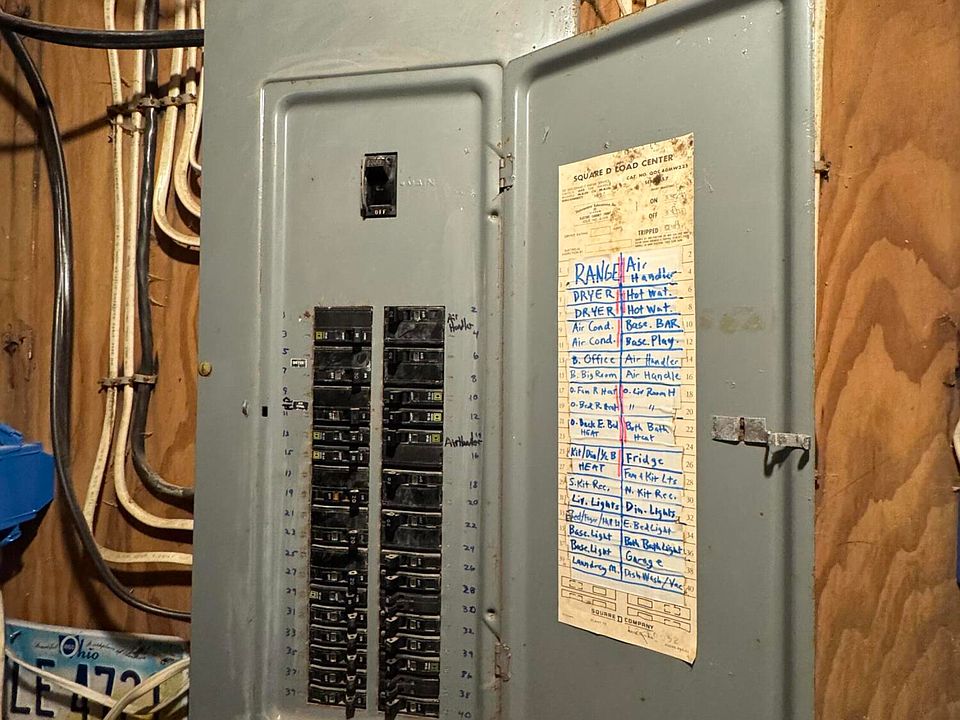 MAIN
OFF
SQUARE D LOAD CENTER
CAT. NO. QOC40MW225
SERIES
ON
OFF
TRIPPED
RANGE Air Handler
DRYER Hot Wat.
DRYER Hot Wat.
Air Cond. Base. BAR
Air Cond. Base. Play.
B. Office Air Handler
B. Big Room Air Handle
O. Fam R Heat O. Liv Room H
O. Bed R Heat " "
O. Back E. Bd HEAT Bath Bath Heat
Kit/Din/½ B HEAT Fridge
Fam & Kit Lts
S. Kit Rec. N. Kit Rec.
Liv. Lights Din. Lights
E. Bed Light
Base. Light Bath Bath Light
Base. Light Garage
Laundry M. Dish Wash/Vac
SQUARE D COMPANY
Air Handler
Air Handler
1 2
3 4
5 6
7 8
9 10
11 12
13
15 16
17 18
19 20
21 22
23 24
25 26
27 28
29 30
31 32
33
35 36
37 38
39 40
Ohio
LE 472